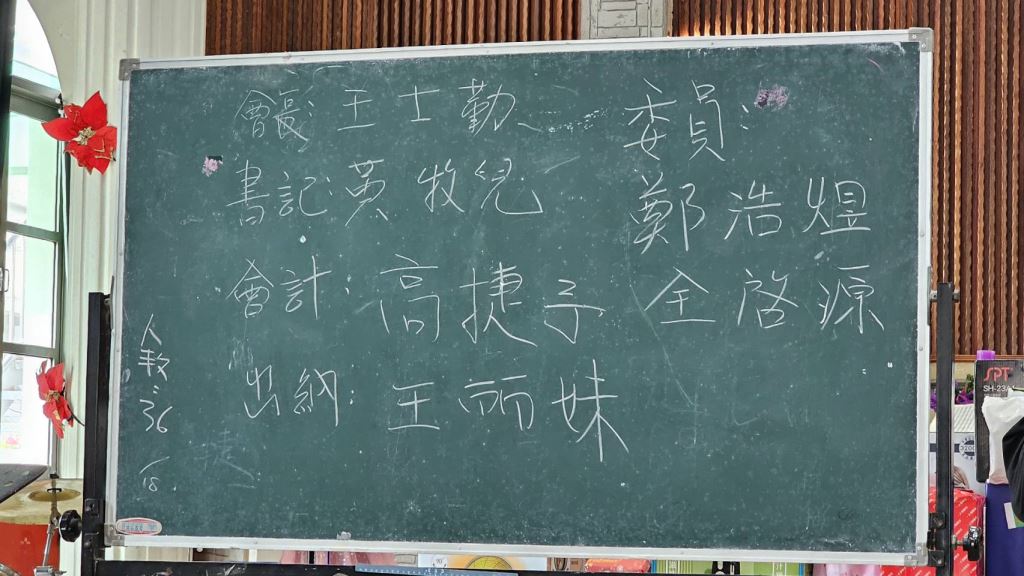 會長:王士勤
書記:黃牧兒
會計:高捷子
出納:王丽妹
委員:
鄭浩煜
全啓源
人数:36
18
SPT